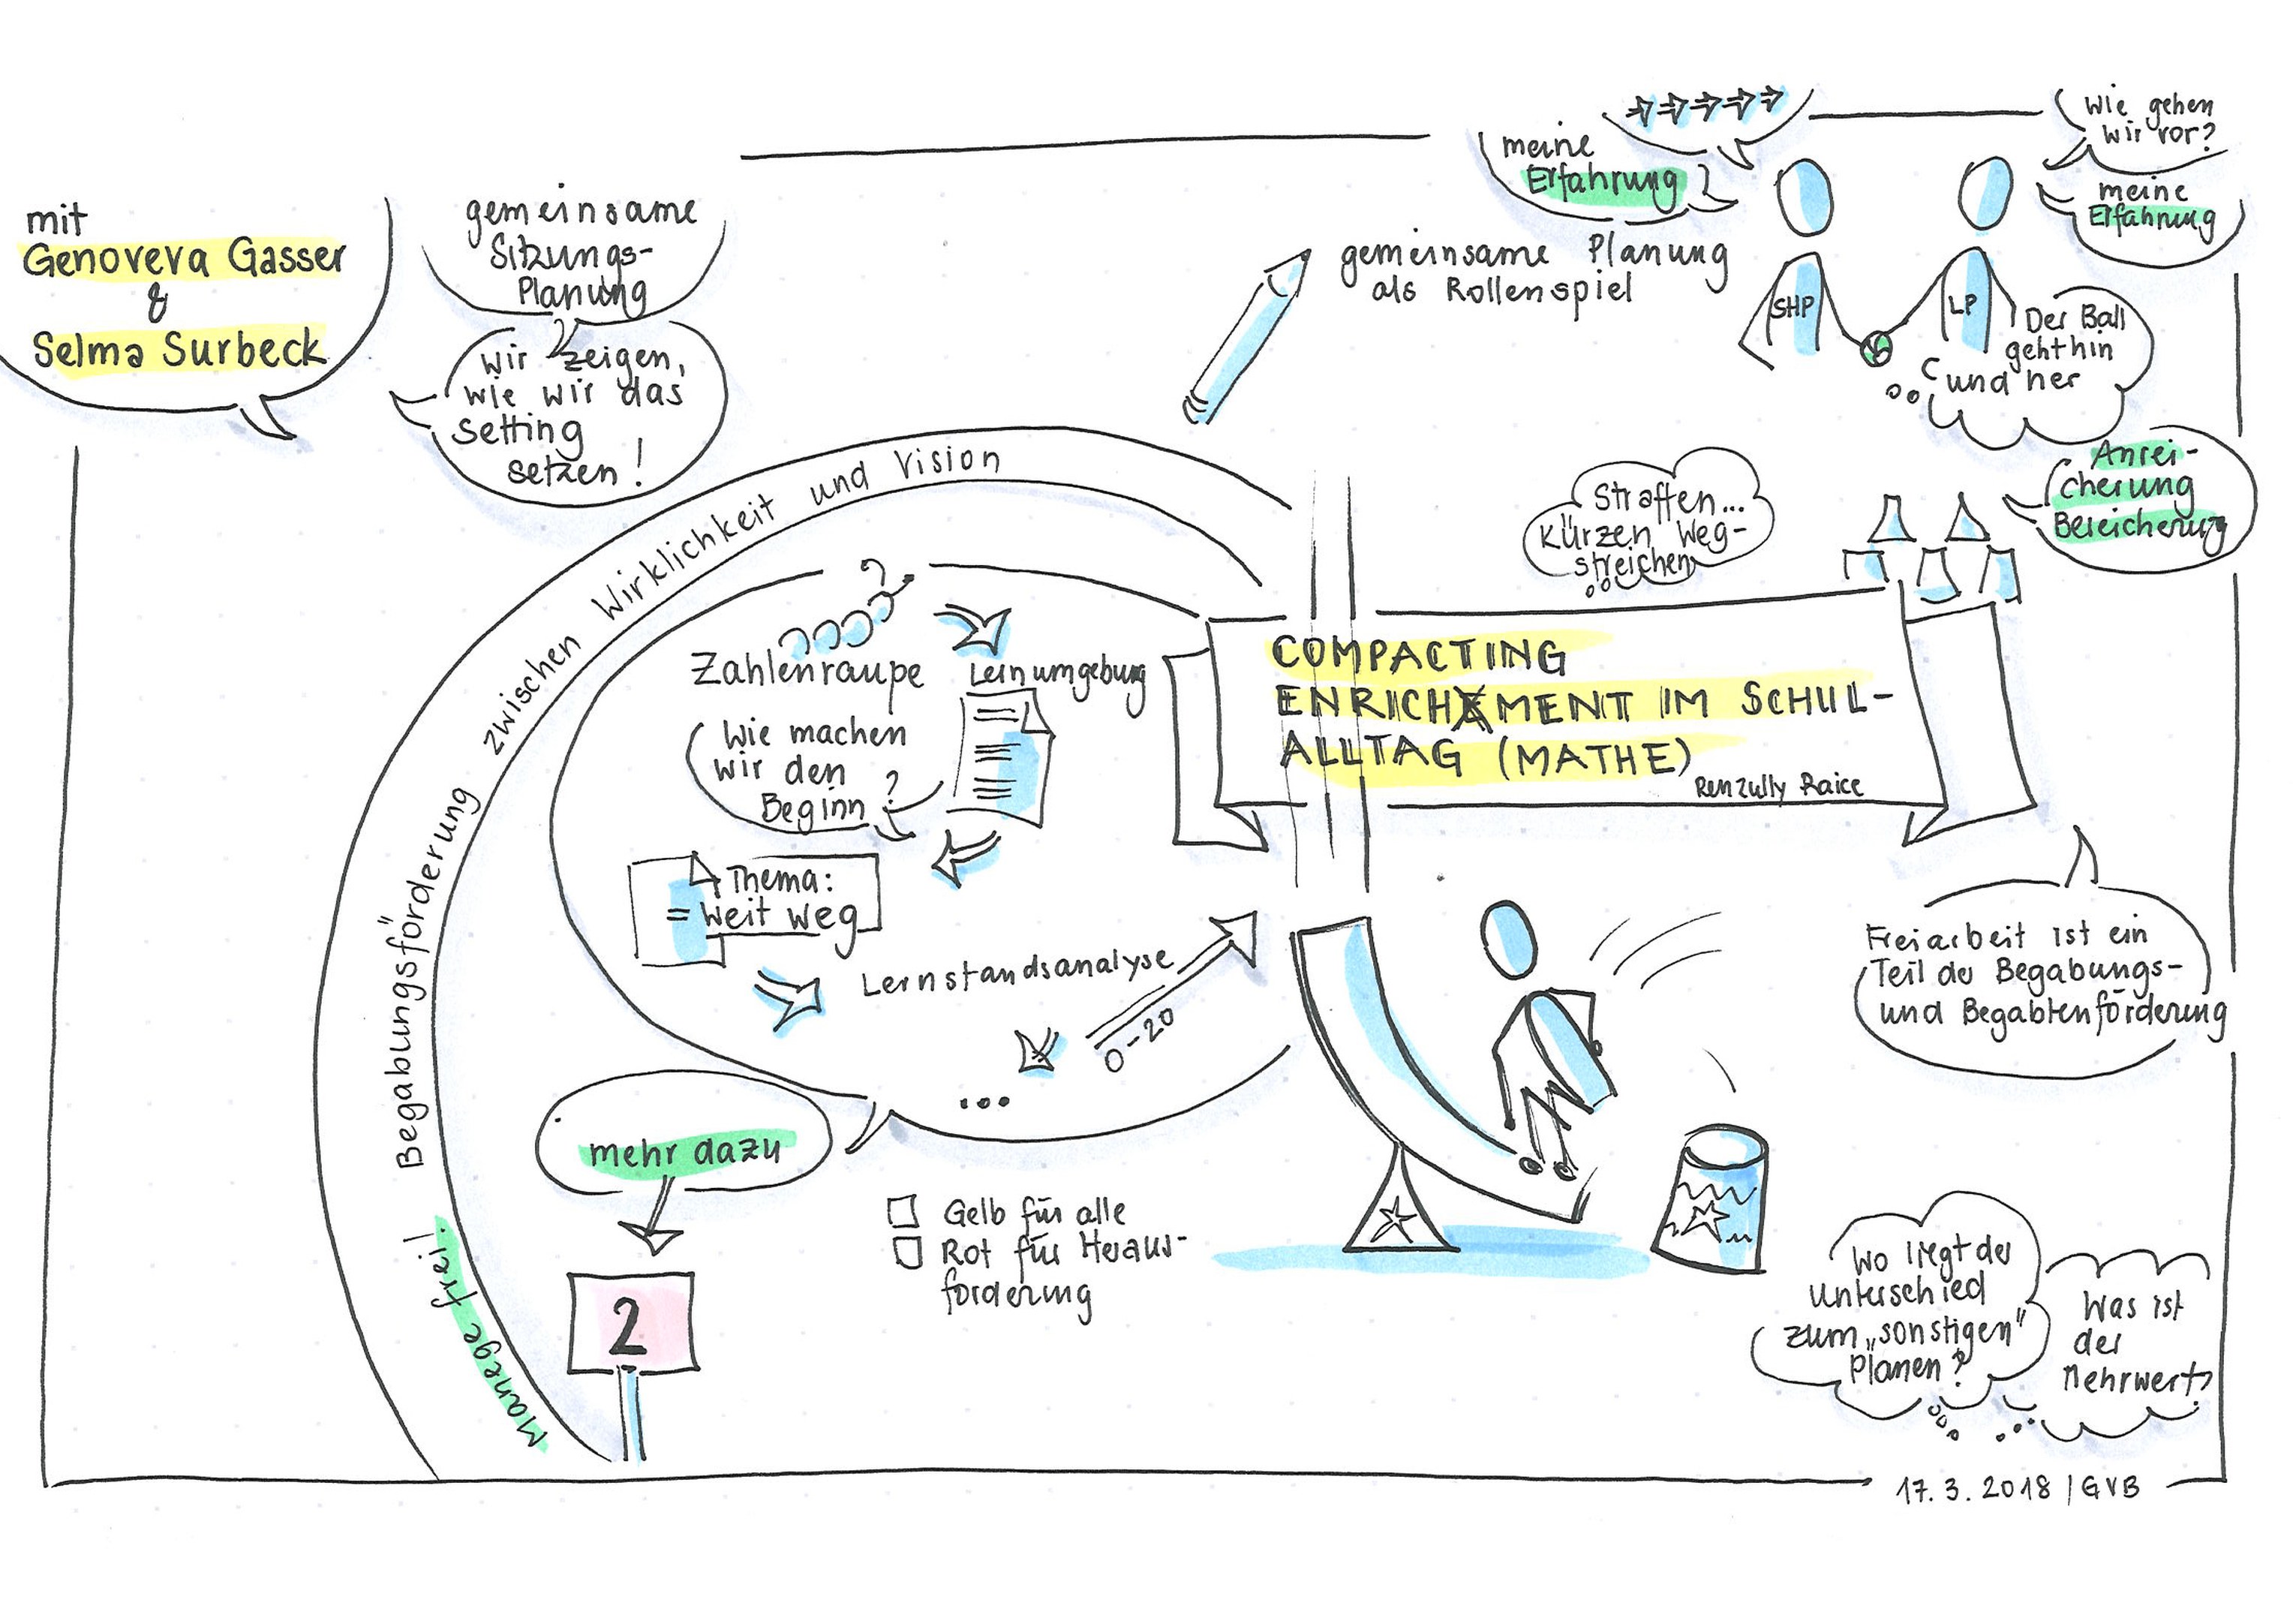 mit
Genoveva Gasser
&
Selma Surbeck
gemeinsame
Sitzungs-
Planung
Wir zeigen,
wie wir das
Setting
setzen!
meine
Erfahrung
gemeinsame Planung
als Rollenspiel
SHP
LP
Wie gehen
wir vor?
meine
Erfahrung
Der Ball
geht hin
und her
Anrei-
cherung
Bereicherung
Straffen...
Kürzen Weg-
streichen
COMPACTING
ENRICHMENT IM SCHUL-
ALLTAG (MATHE)
Renzully Raice
Begabungsförderung zwischen Wirklichkeit und Vision
Manege frei!
?
Zahlenraupe
Lernumgebung
Wie machen
wir den
Beginn?
Thema:
= Weit weg
Lernstandsanalyse
0-20
...
mehr dazu
2
Gelb für alle
Rot für Heraus-
forderung
Freiarbeit ist ein
Teil der Begabungs-
und Begabtenförderung
Wo liegt der
Unterschied
zum „sonstigen"
Planen?
Was ist
der
Mehrwert?
17.3.2018 / GVB